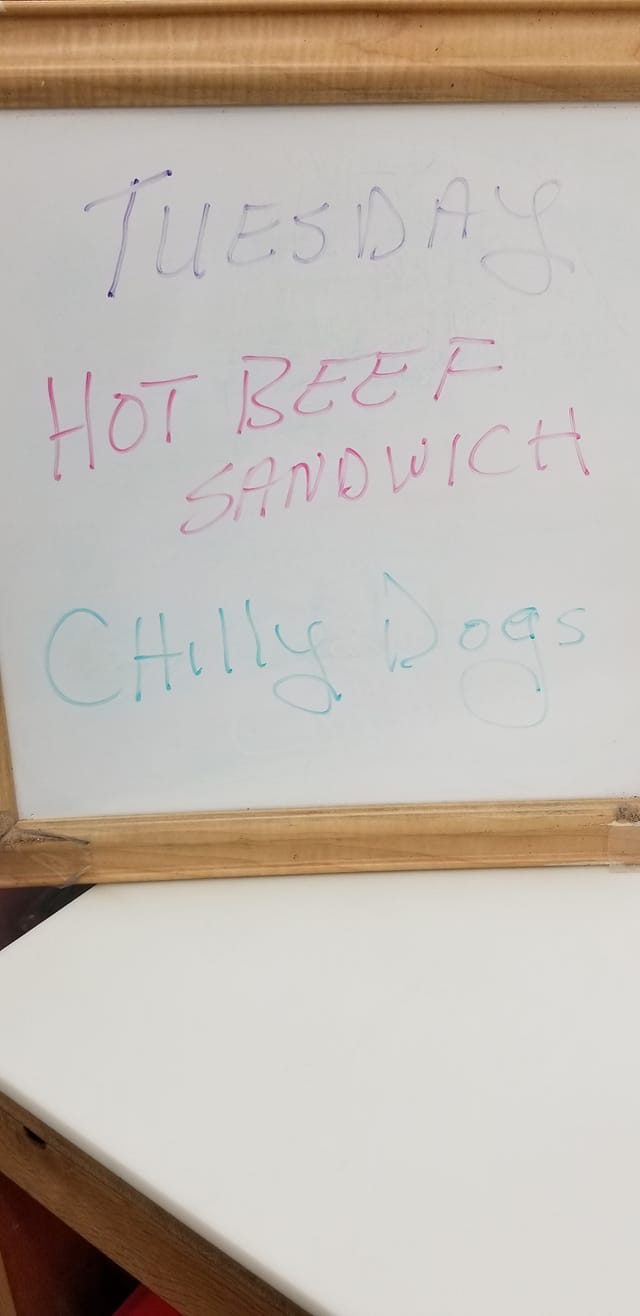 TUESDAY
HOT BEEF
SANDWICH
CHilly Dogs